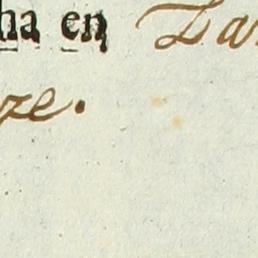 ha en Za
ze.